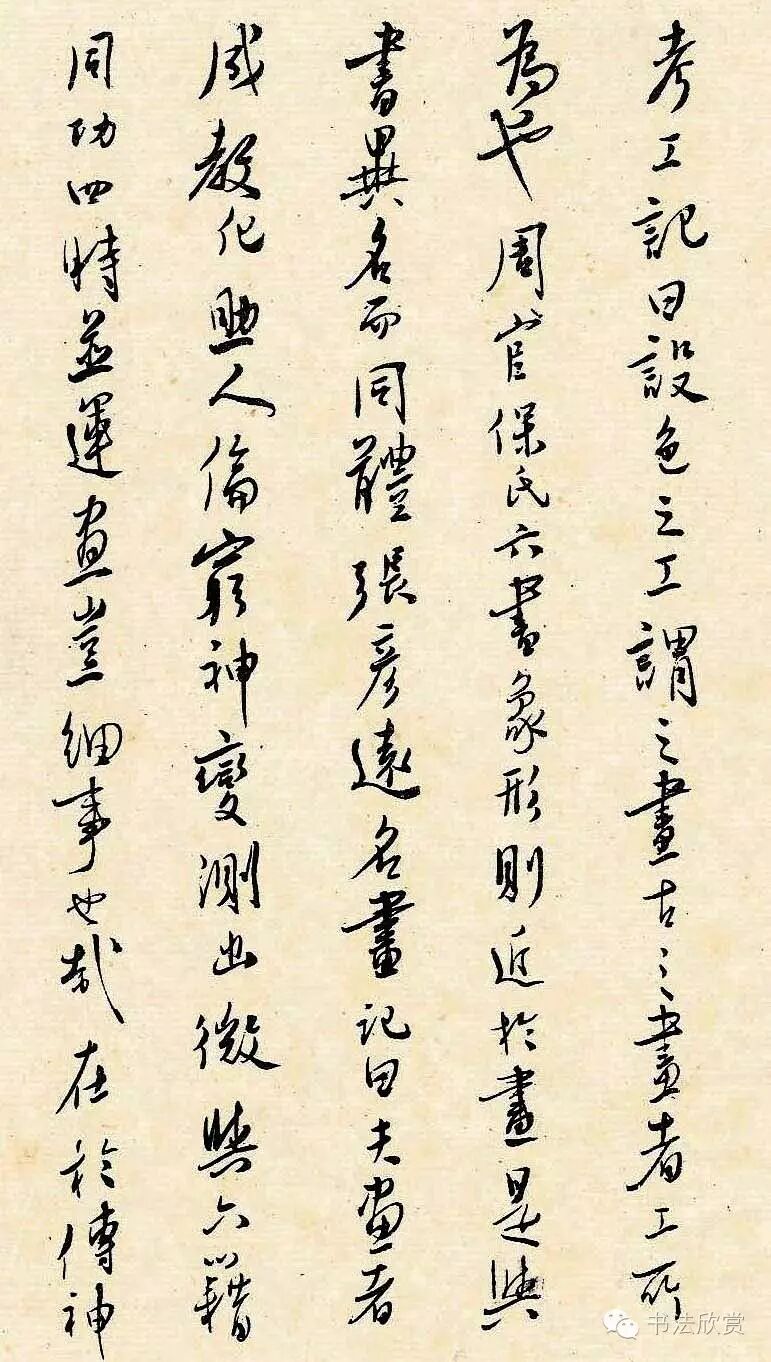 考工記曰設色之工謂之畫古之畫者工所
為也周官保氏六書象形則近於畫是與
書異名而同體張彦遠名畫記曰夫畫者
成教化助人倫窮神變測幽微與六籍
同功四時並運畫豈細事也哉在於傳神
书法欣赏